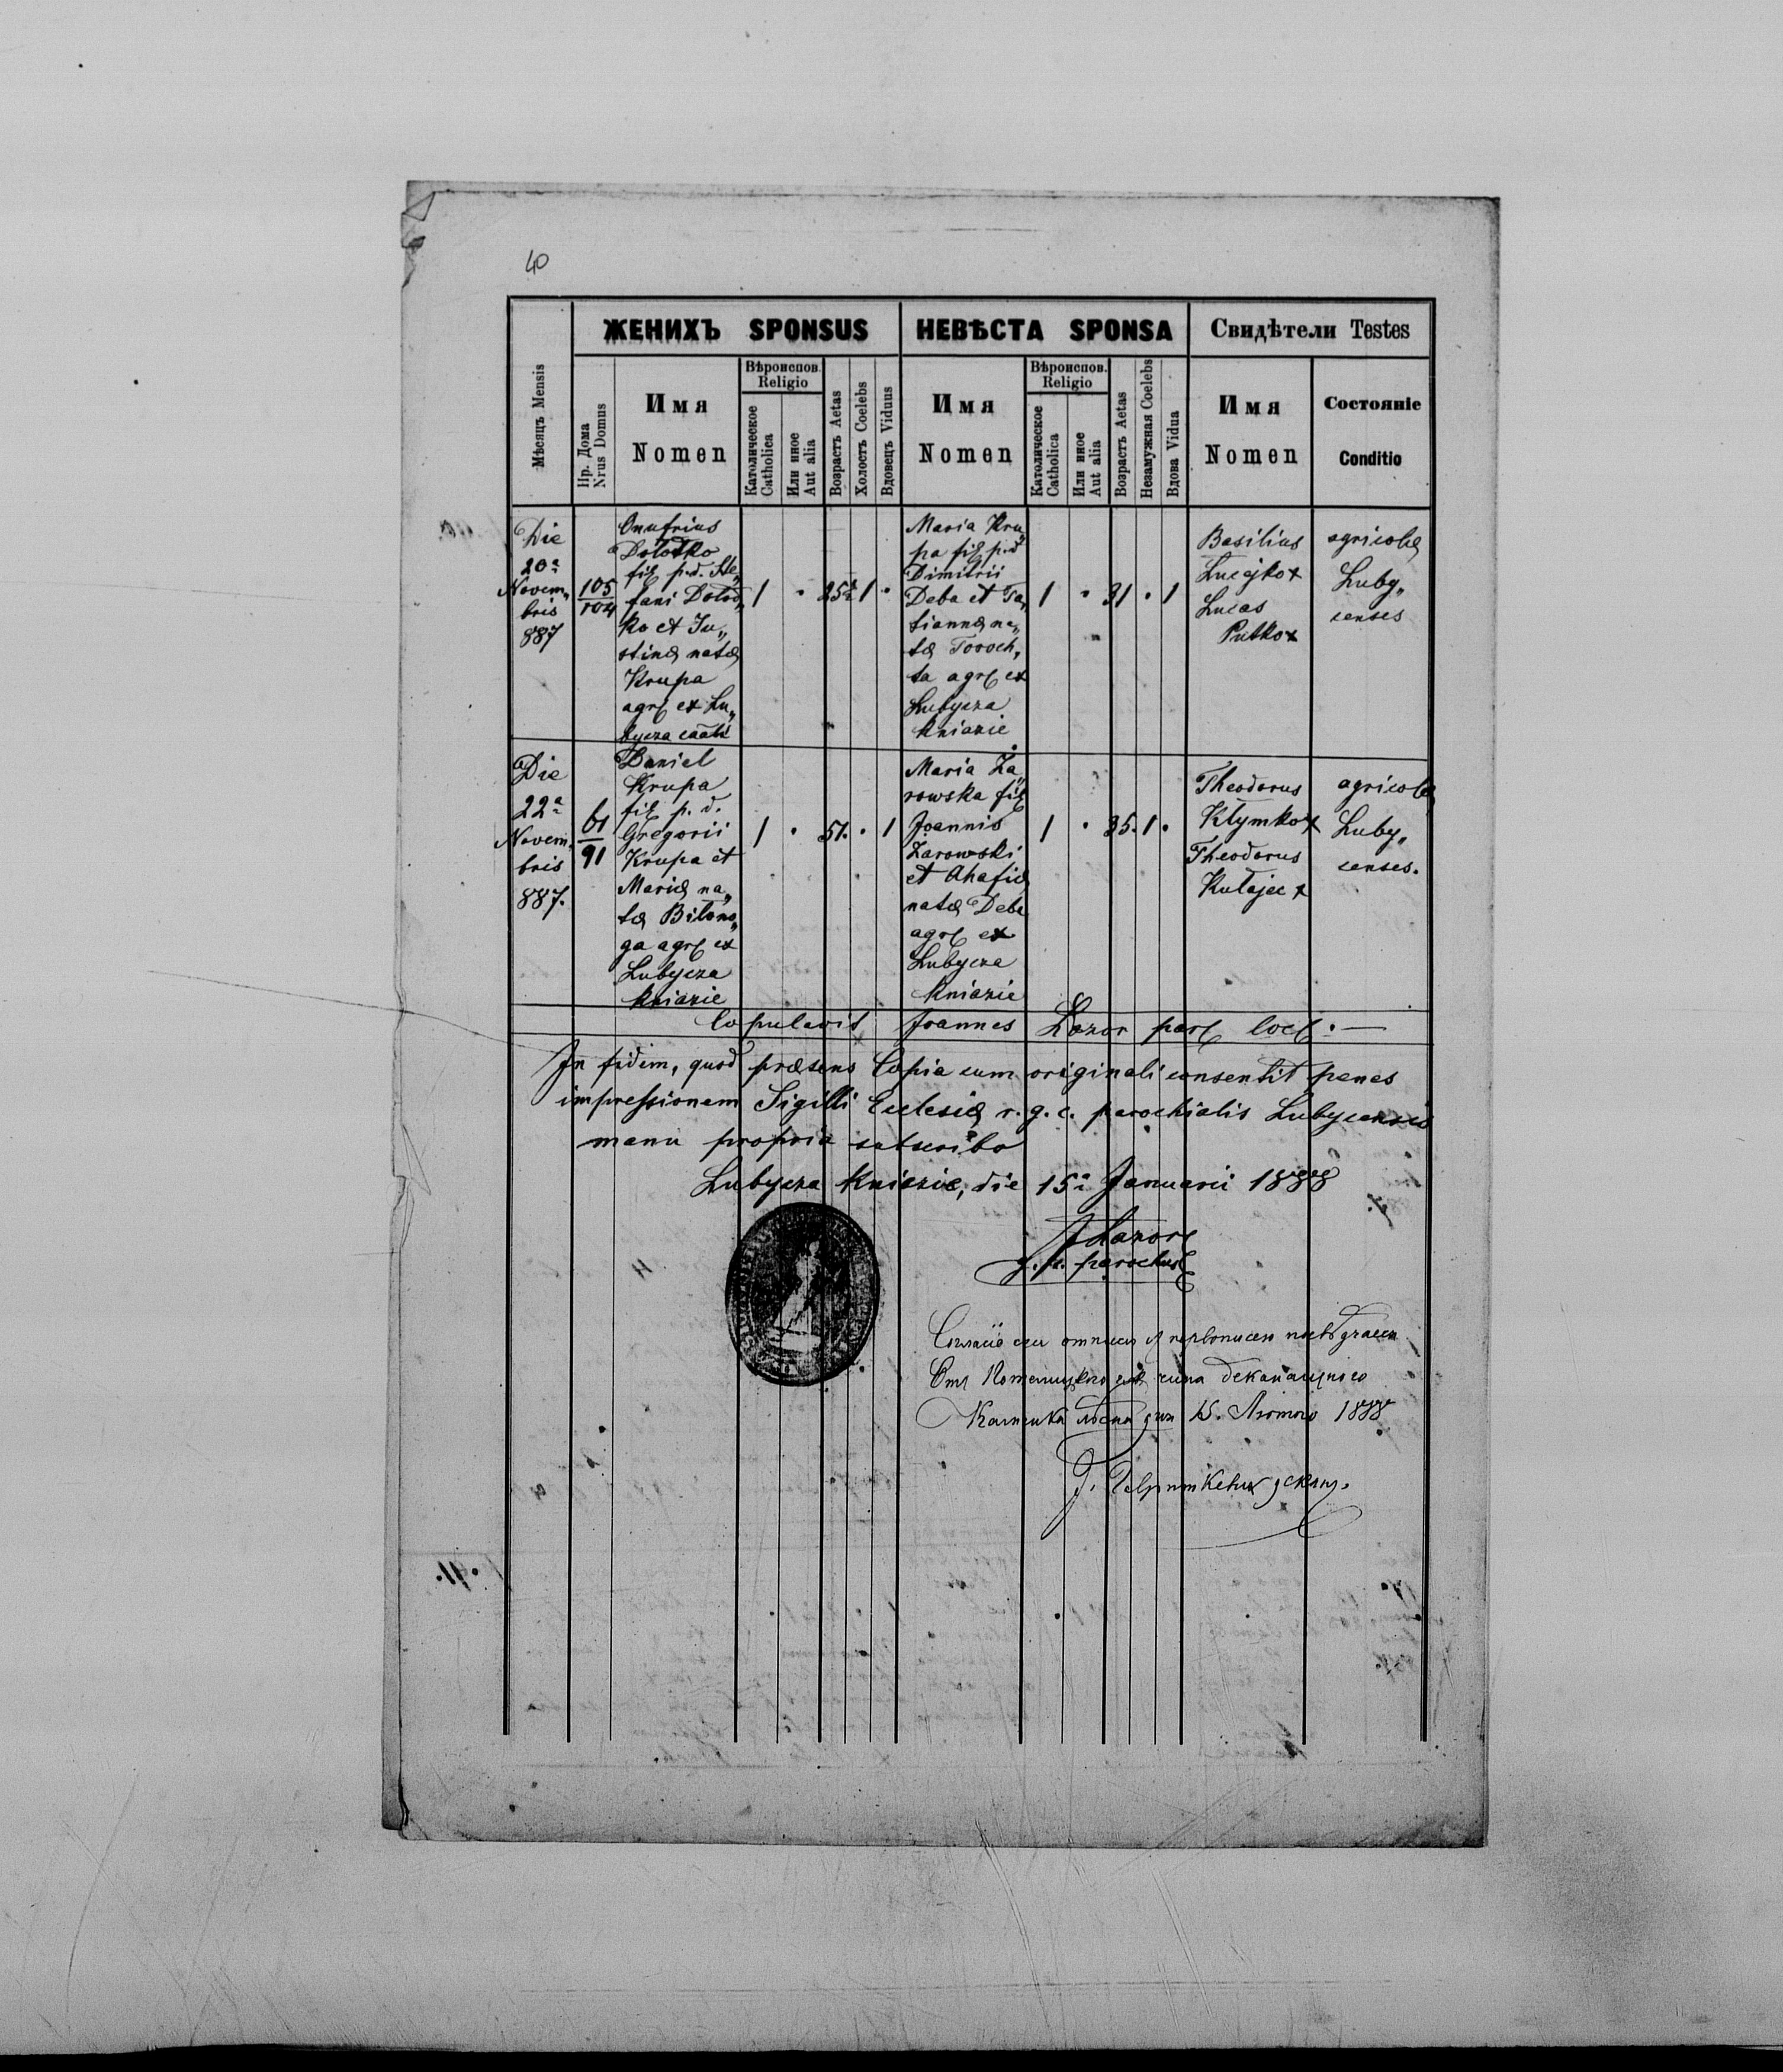 40
ЖЕНИХЪ SPONSUS
НЕВѢСТА SPONSA
Свидѣтели Testes
Мѣсяцъ Mensis
Нр. Дома
Nrus Domus
Имя
Nomen
Вѣроиспов.
Religio
Католическое
Catholica
Или иное
Aut alia
Возрастъ Aetas
Холостъ Coelebs
Вдовецъ Viduus
Имя
Nomen
Вѣроиспов.
Religio
Католическое
Catholica
Или иное
Aut alia
Возрастъ Aetas
Незамужная Coelebs
Вдова Vidua
Имя
Nomen
Состояніе
Conditio
Die
20ª
Novem„
bris
887
105
104
Onufrius
Dolotko
fil p.d. Ste„
fani Dolod„
ko et Ju„
stinæ natæ
Krupa
agr ex Lu„
bycza
1 25½ 1
Maria Kru„
pa fil p.d
Dimitrii
Deba et Ta„
tiannæ na„
tæ Toroch„
ta agr ex
Lubycza
Kniazie
1 31 1
Basilius
Lucejko x
Lucas
Putko x
agricolæ
Luby„
censes
Die
22ª
Novem„
bris
887.
61
91
Daniel
Krupa
fil p. d.
Gregorii
Krupa et
Mariæ na„
tæ Bilono„
ga agr ex
Lubycza
Kniazie
1 51. 1
Maria Za„
rowska fil
Joannis
Zarowski
et Ahafiæ
natæ Deba
agr ex
Lubycza
Kniazie
1 35. 1
Theodorus
Klymko x
Theodorus
Kułajec x
agricolæ
Luby„
censes.
Copulavit Joannes Lazor par loc :—
In fidem, quod præsens Copia cum originali consentit penes
impressionem Sigilli Ecclesiæ r. g. c. parochialis Lubycensis
manu propria subscribo
Lubycza Kniazie, die 15ª Januarii 1888
JLazor
parochus
первописею
деканального
Лютого 1888